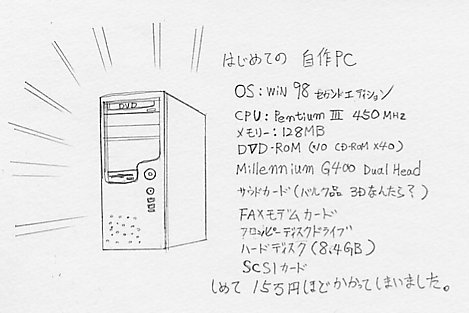 はじめての 自作PC
OS:WIN 98 セカンドエディション
CPU:Pentium III 450MHz
メモリー:128MB
DVD-ROM (%10 CD-ROM X40)
Millennium G400 Dual Head
サウンドカード(バルク品 3Dなんたら?)
FAXモデムカード
フロッピーディスクドライブ
ハードディスク(8.4GB)
SCSIカード
しめて 15万円ほどかかってしまいました。
DVD